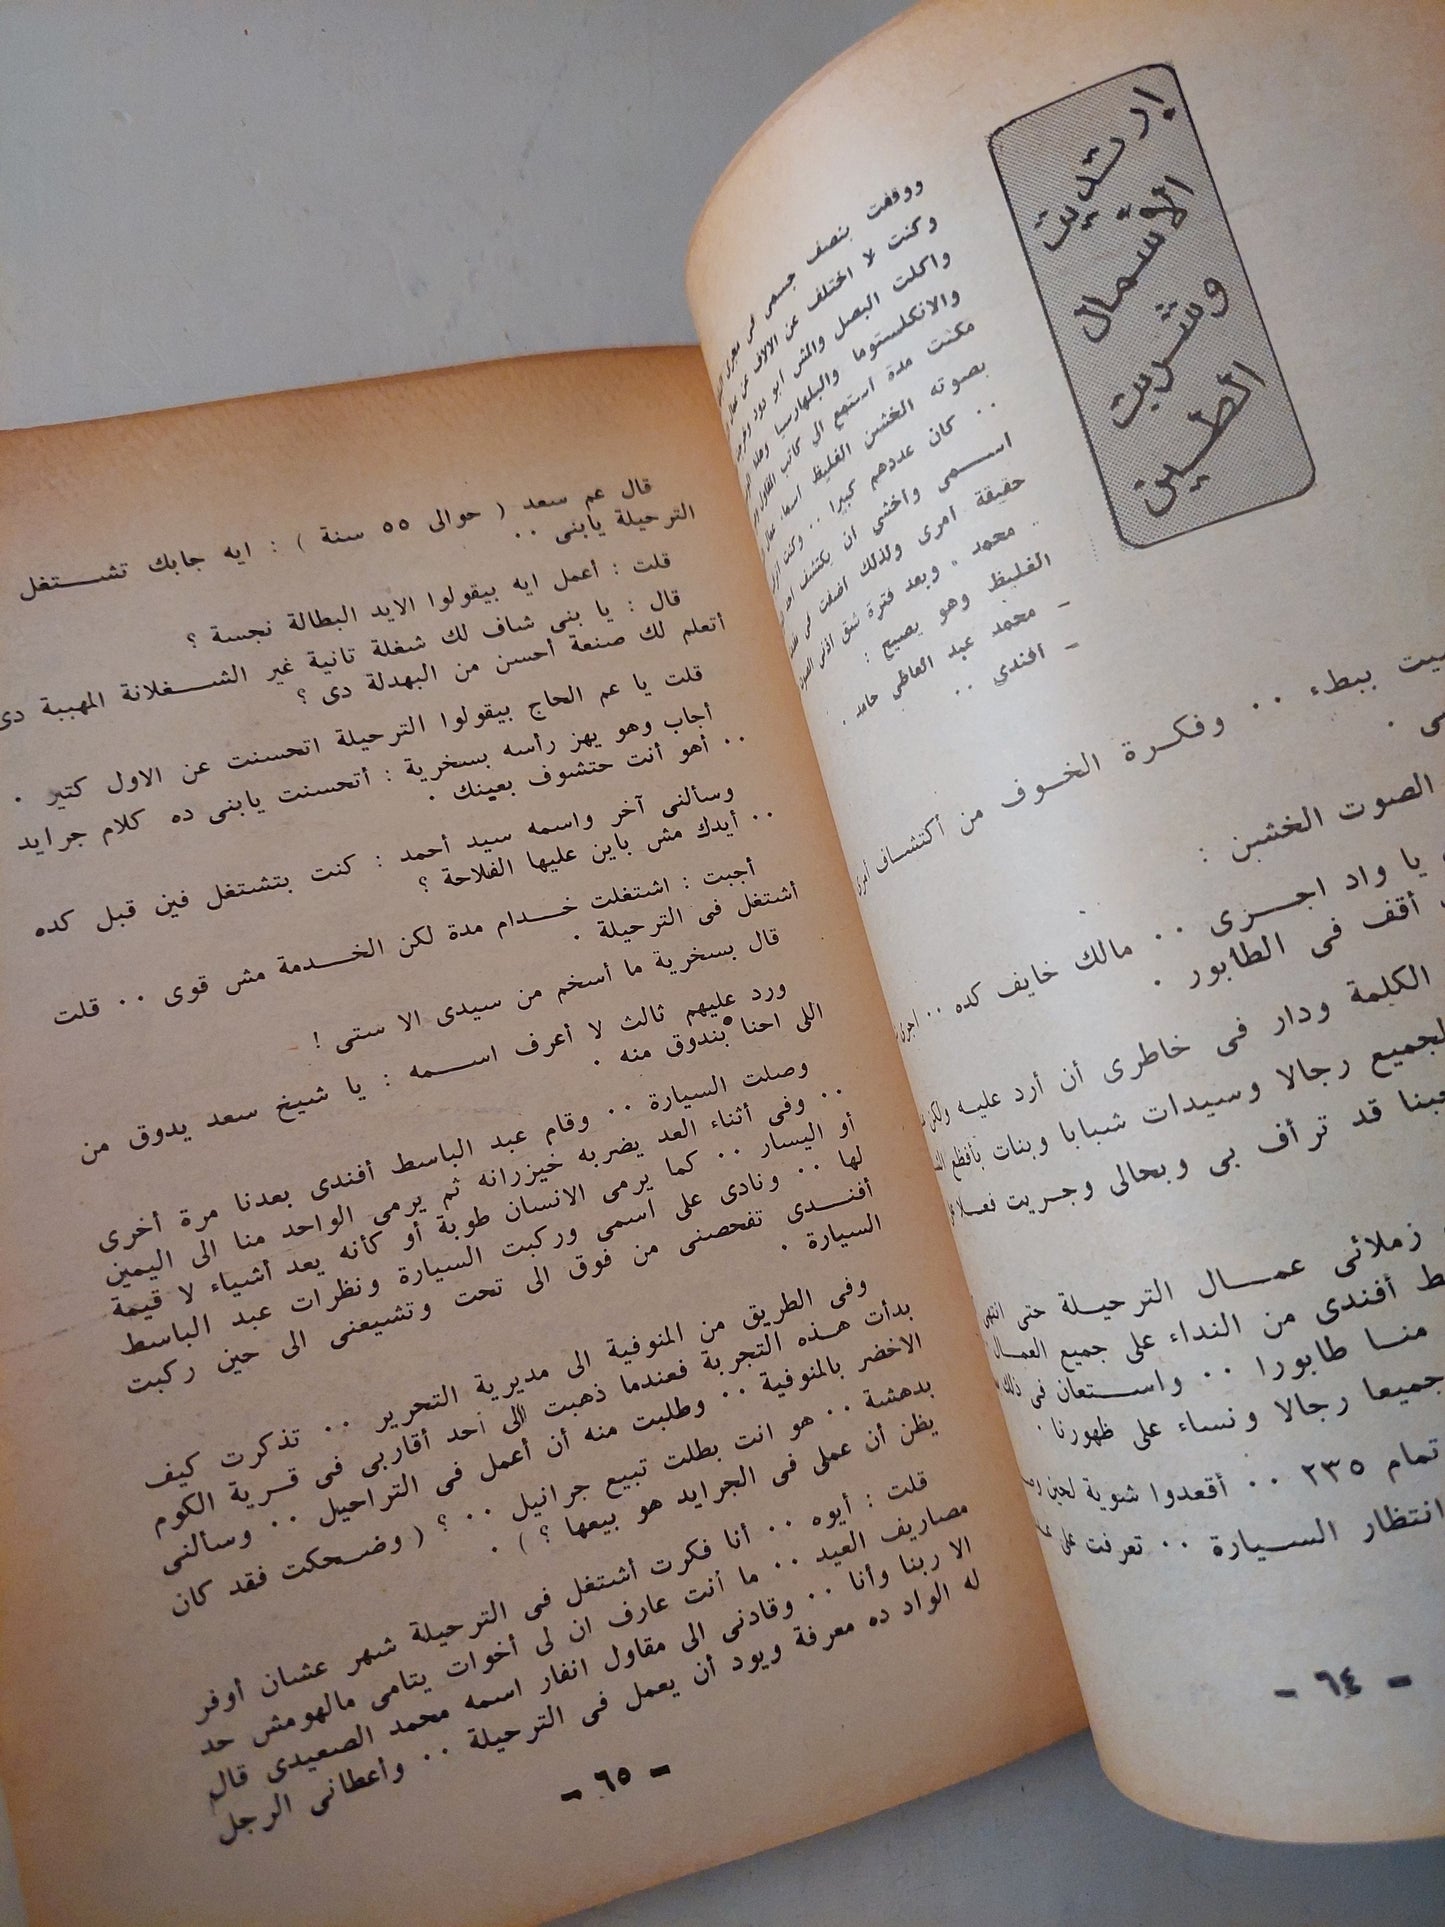 إرتديت
الأسمال
وشربت
الطين
ووقفت بنصف جسمى فى
وكنت لا اختلف عن الالاف من
واكلت البصل والمش ابو دود
والانكلستوما والبلهارسيا
مكنت مدة استمع الى كاتب
بصوته الخشن الغليظ اسماء
.. كان عددهم كبيرا .. وكنت
اســـمى واخشى ان يكتشف احد
حقيقة امرى ولذلك اضفت
محمد » وبعد فترة شق اذنى الصوت
الغليظ وهو يصيح :
- محمد عبد العاطى حامد .
- افندي ..
ببطء .. وفكـرة الخـوف من أكتشـاف أمرى
الصوت الخشن :
يا واد اجـــزى .. مالك خايف كده .. اجرى
أقف فى الطابور .
الكلمة ودار فى خاطرى أن أرد عليـه ولكن
لجميع رجالا وسيدات شبابا وبنات بأفظع
قد ترأف بى وبحالى وجـريت فعـلا
زملائى عمـــال الترحيـلة حتى انتهى
أفندى من النداء على جميع العمـال
منـا طابورا .. واســـتعان فى ذلك
جميعا رجالا ونساء على ظهورنا .
تمام ٣٣٥ .. أقعدوا شوية لحين
انتظار السـيارة .. تعرفت على
- ٦٤ -
قال عم سعد ( حوالى ٥٥ سنة ) : ايه جابك تشـــتغل
الترحيلة يابنى ..
قلت : أعمل ايه بيقولوا الايد البطالة نجسة ؟
قال : يا بنى شاف لك شغلة تانية غير الشـــغلانة المهببة دى
أتعلم لك صنعة أحسن من البهدلة دى ؟
قلت يا عم الحاج بيقولوا الترحيلة اتحسنت عن الاول كتير .
أجاب وهو يهز رأسه بسخرية : أتحسنت يابنى ده كلام جرايد
.. أهو أنت حتشوف بعينك .
وسألنى آخر واسمه سيد أحمد : كنت بتشتغل فين قبل كده
.. أيدك مش باين عليها الفلاحة ؟
أجبت : اشتغلت خـــدام مدة لكن الخـــدمة مش قوى .. قلت
أشتغل فى الترحيلة .
قال بسخرية ما أسخم من سيدى الا ستى !
ورد عليهم ثالث لا أعرف اســـمه : يا شيخ سعد يدوق من
اللى احنا بندوق منه .
وصلت السيارة .. وقام عبد الباسط أفندى بعدنا مرة أخرى
.. وفى أثناء العد يضربه خيزرانه ثم يرمى الواحد منا الى اليمين
أو اليسار .. كما يرمى الانسان طوبة أو كأنه يعد أشياء لا قيمة
لها .. ونادى على اسمى وركبت السيارة ونظرات عبد الباسط
أفنـــدى تفحصنى من فوق الى تحت وتشيعنى الى حين ركبت
السيارة .
وفى الطريق من المنوفية الى مديرية التحرير .. تذكرت كيف
بدأت هـذه التجربة فعندما ذهبت الى أحد أقاربى فى قـرية الكوم
الاخضر بالمنوفية .. وطلبت منه أن أعمل فى التراحيل .. وسألنى
بدهشة .. هو انت بطلت تبيع جرانيل .. ؟ ( وضـحكت فقد كان
يظن أن عملى فى الجرايد هو بيعها ؟ ) .
قلت : أيوه .. أنا فكرت أشتغل فى الترحيلة شهر عشان أوفر
مصاريف العيد .. ما أنت عارف ان لى أخوات يتامى مالهومش حد
الا ربنا وأنا .. وقادنى الى مقاول انفار اسمه محمد الصعيدى قال
له الواد ده معرفة ويود أن يعمل فى الترحيلة .. وأعطانى الرجل
- ٦٥ -